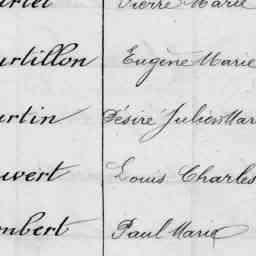 Pierre Marie
urtillon Eugène Marie
urtin Désiré Julien Mar
uvert Louis Charles
mbert Paul Marie